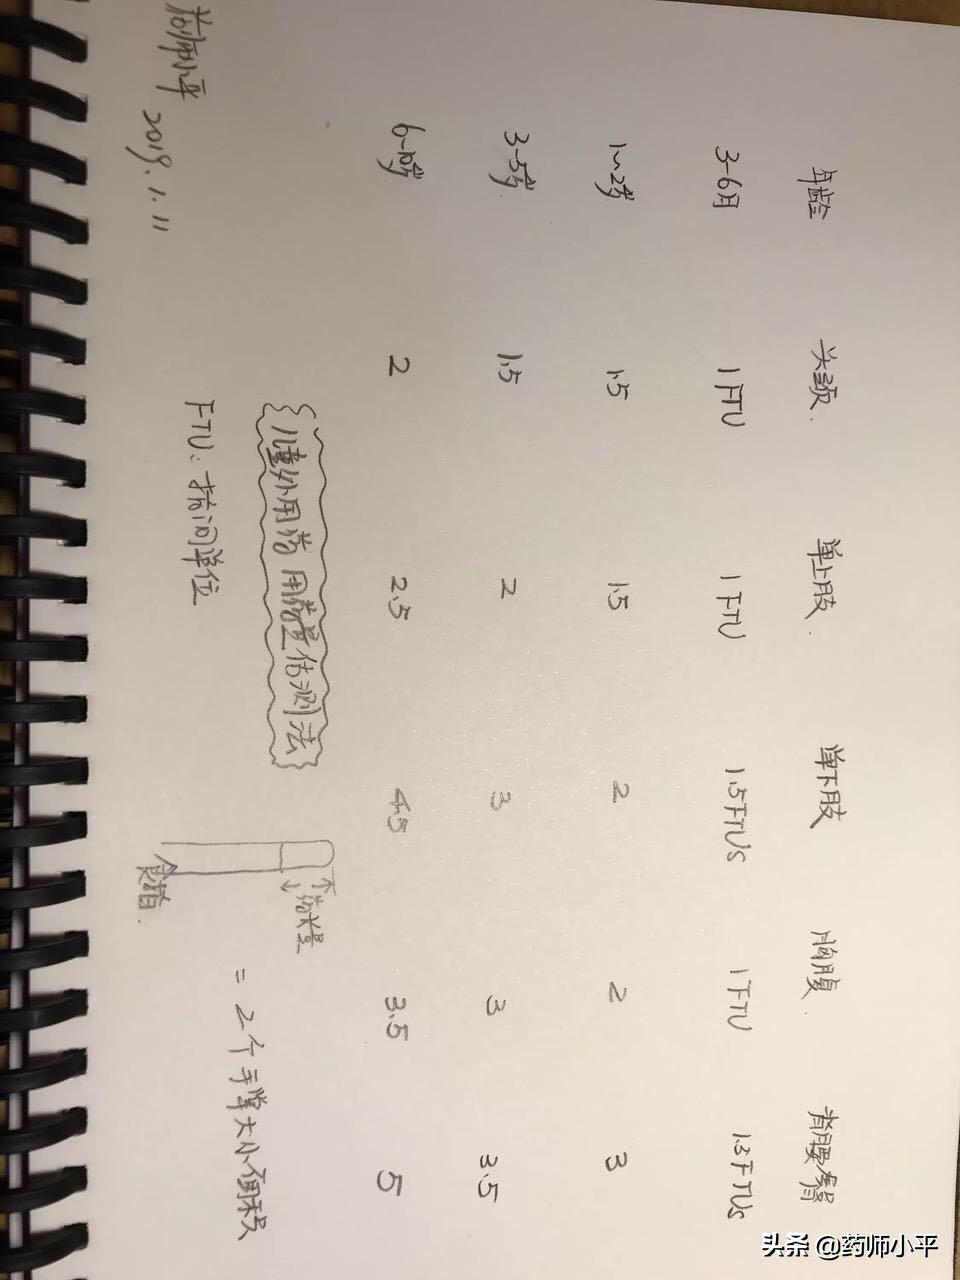 年龄 头颈. 单上肢. 单下肢 胸腹. 背腰臀
3-6月 1FTU 1FTU 1.5FTUs 1FTU 1.3FTUs
1~2岁 1.5 1.5 2 2 3
3-5岁 1.5 2 3 3 3.5
6-10岁 2 2.5 4.5 3.5 5
儿童外用药 用药量估测法
FTU: 指间单位
药量
食指.
= 2个手掌大小面积
药师小平
2019.1.11
头条 @药师小平